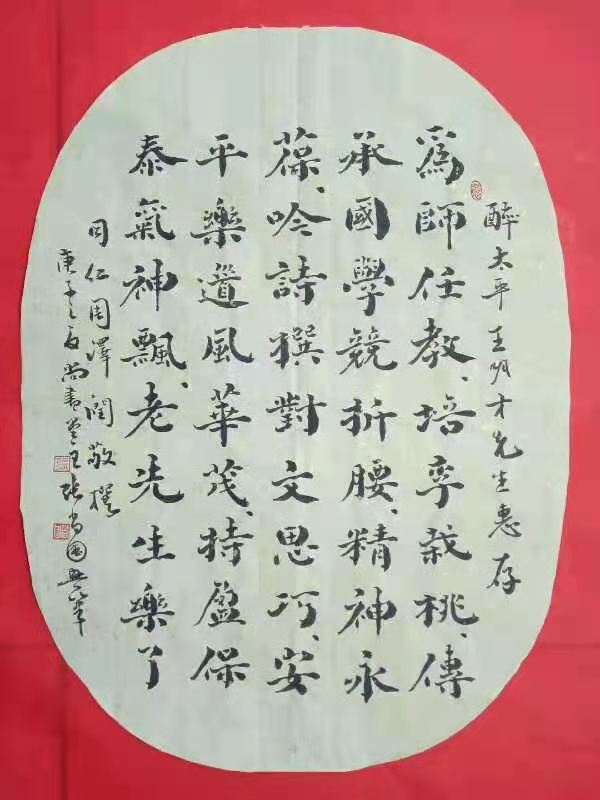 醉太平 王明才先生惠存
為師任教、培李栽桃、傳
承國學競折腰、精神永
葆、吟詩撰對文思巧、安
平樂道風華茂、持盈保
泰氣神飄、老先生樂了
同仁周澤閏敬撰
庚子之夏尚書堂主張尚國興筆